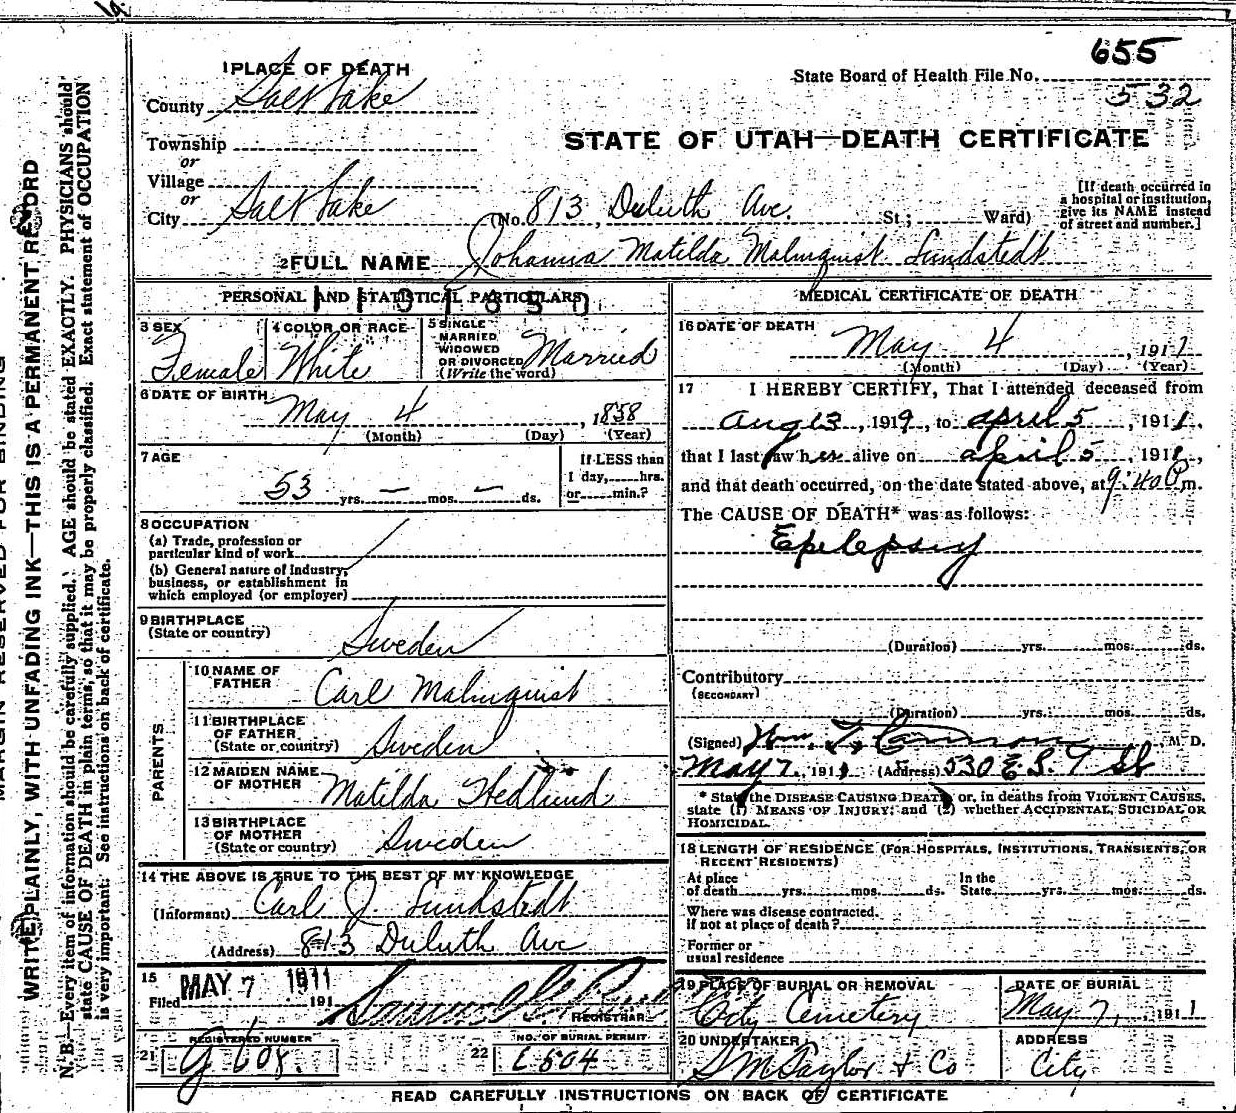 655
1 PLACE OF DEATH
State Board of Health File No.
532
County Salt Lake
STATE OF UTAH—DEATH CERTIFICATE
Township
or
Village
or
City Salt Lake (No. 813, Duluth Ave. St; Ward)
[If death occurred in
a hospital or institution,
give its NAME instead
of street and number.]
2 FULL NAME Johanna Matilda Malmquist Sundstedt
PERSONAL AND STATISTICAL PARTICULARS
3 SEX
Female
4 COLOR OR RACE
White
5 SINGLE
MARRIED
WIDOWED
OR DIVORCED
(Write the word)
Married
6 DATE OF BIRTH
May 4, 1858
(Month) (Day) (Year)
7 AGE
53 yrs. — mos. — ds.
If LESS than
1 day, hrs.
or min.?
8 OCCUPATION
(a) Trade, profession or
particular kind of work
(b) General nature of industry,
business, or establishment in
which employed (or employer)
9 BIRTHPLACE
(State or country)
Sweden
PARENTS
10 NAME OF
FATHER
Carl Malmquist
11 BIRTHPLACE
OF FATHER
(State or country)
Sweden
12 MAIDEN NAME
OF MOTHER
Matilda Hedlund
13 BIRTHPLACE
OF MOTHER
(State or country)
Sweden
14 THE ABOVE IS TRUE TO THE BEST OF MY KNOWLEDGE
(Informant) Carl J Sundstedt
(Address) 813 Duluth Ave
15
Filed MAY 7 1911 191
REGISTRAR
REGISTERED NUMBER
21
NO. OF BURIAL PERMIT
22 E504
MEDICAL CERTIFICATE OF DEATH
16 DATE OF DEATH
May 4, 1911
(Month) (Day) (Year)
17 I HEREBY CERTIFY, That I attended deceased from
Aug 13, 1919, to April 5, 1911,
that I last saw her alive on April 5, 1911,
and that death occurred, on the date stated above, at 9:40 P m.
The CAUSE OF DEATH* was as follows:
Epilepsy
(Duration) yrs. mos. ds.
Contributory
(SECONDARY)
(Duration) yrs. mos. ds.
(Signed) Wm. T. Cannon, M. D.
May 7, 1911 (Address) 530 E. S. T St
* State the DISEASE CAUSING DEATH, or, in deaths from VIOLENT CAUSES,
state (1) MEANS OF INJURY; and (2) whether ACCIDENTAL, SUICIDAL OR
HOMICIDAL.
18 LENGTH OF RESIDENCE (FOR HOSPITALS, INSTITUTIONS, TRANSIENTS, OR
RECENT RESIDENTS)
At place
of death yrs. mos. ds.
In the
State yrs. mos. ds.
Where was disease contracted,
if not at place of death?
Former or
usual residence
19 PLACE OF BURIAL OR REMOVAL
City Cemetery
DATE OF BURIAL
May 7, 1911
20 UNDERTAKER
S M Taylor & Co
ADDRESS
City
READ CAREFULLY INSTRUCTIONS ON BACK OF CERTIFICATE
MARGIN RESERVED FOR BINDING
WRITE PLAINLY, WITH UNFADING INK—THIS IS A PERMANENT RECORD
N. B.—Every item of information should be carefully supplied. AGE should be stated EXACTLY. PHYSICIANS should
state CAUSE OF DEATH in plain terms, so that it may be properly classified. Exact statement of OCCUPATION
is very important. See instructions on back of certificate.